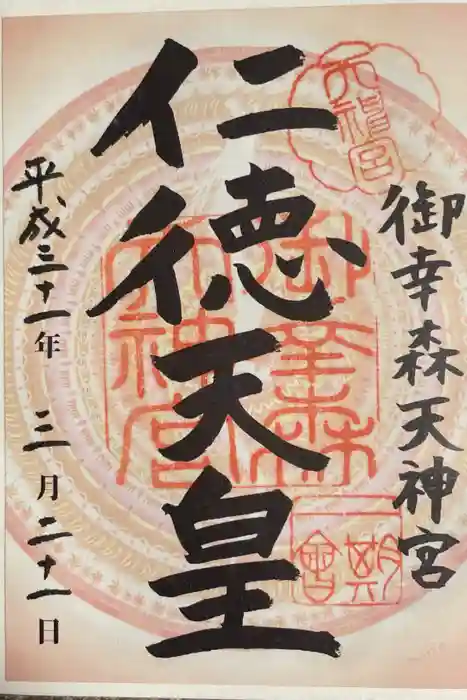 御幸森天神宮
仁徳天皇
平成三十一年 三月二十一日
天神宮
御幸森天神宮
一期一會